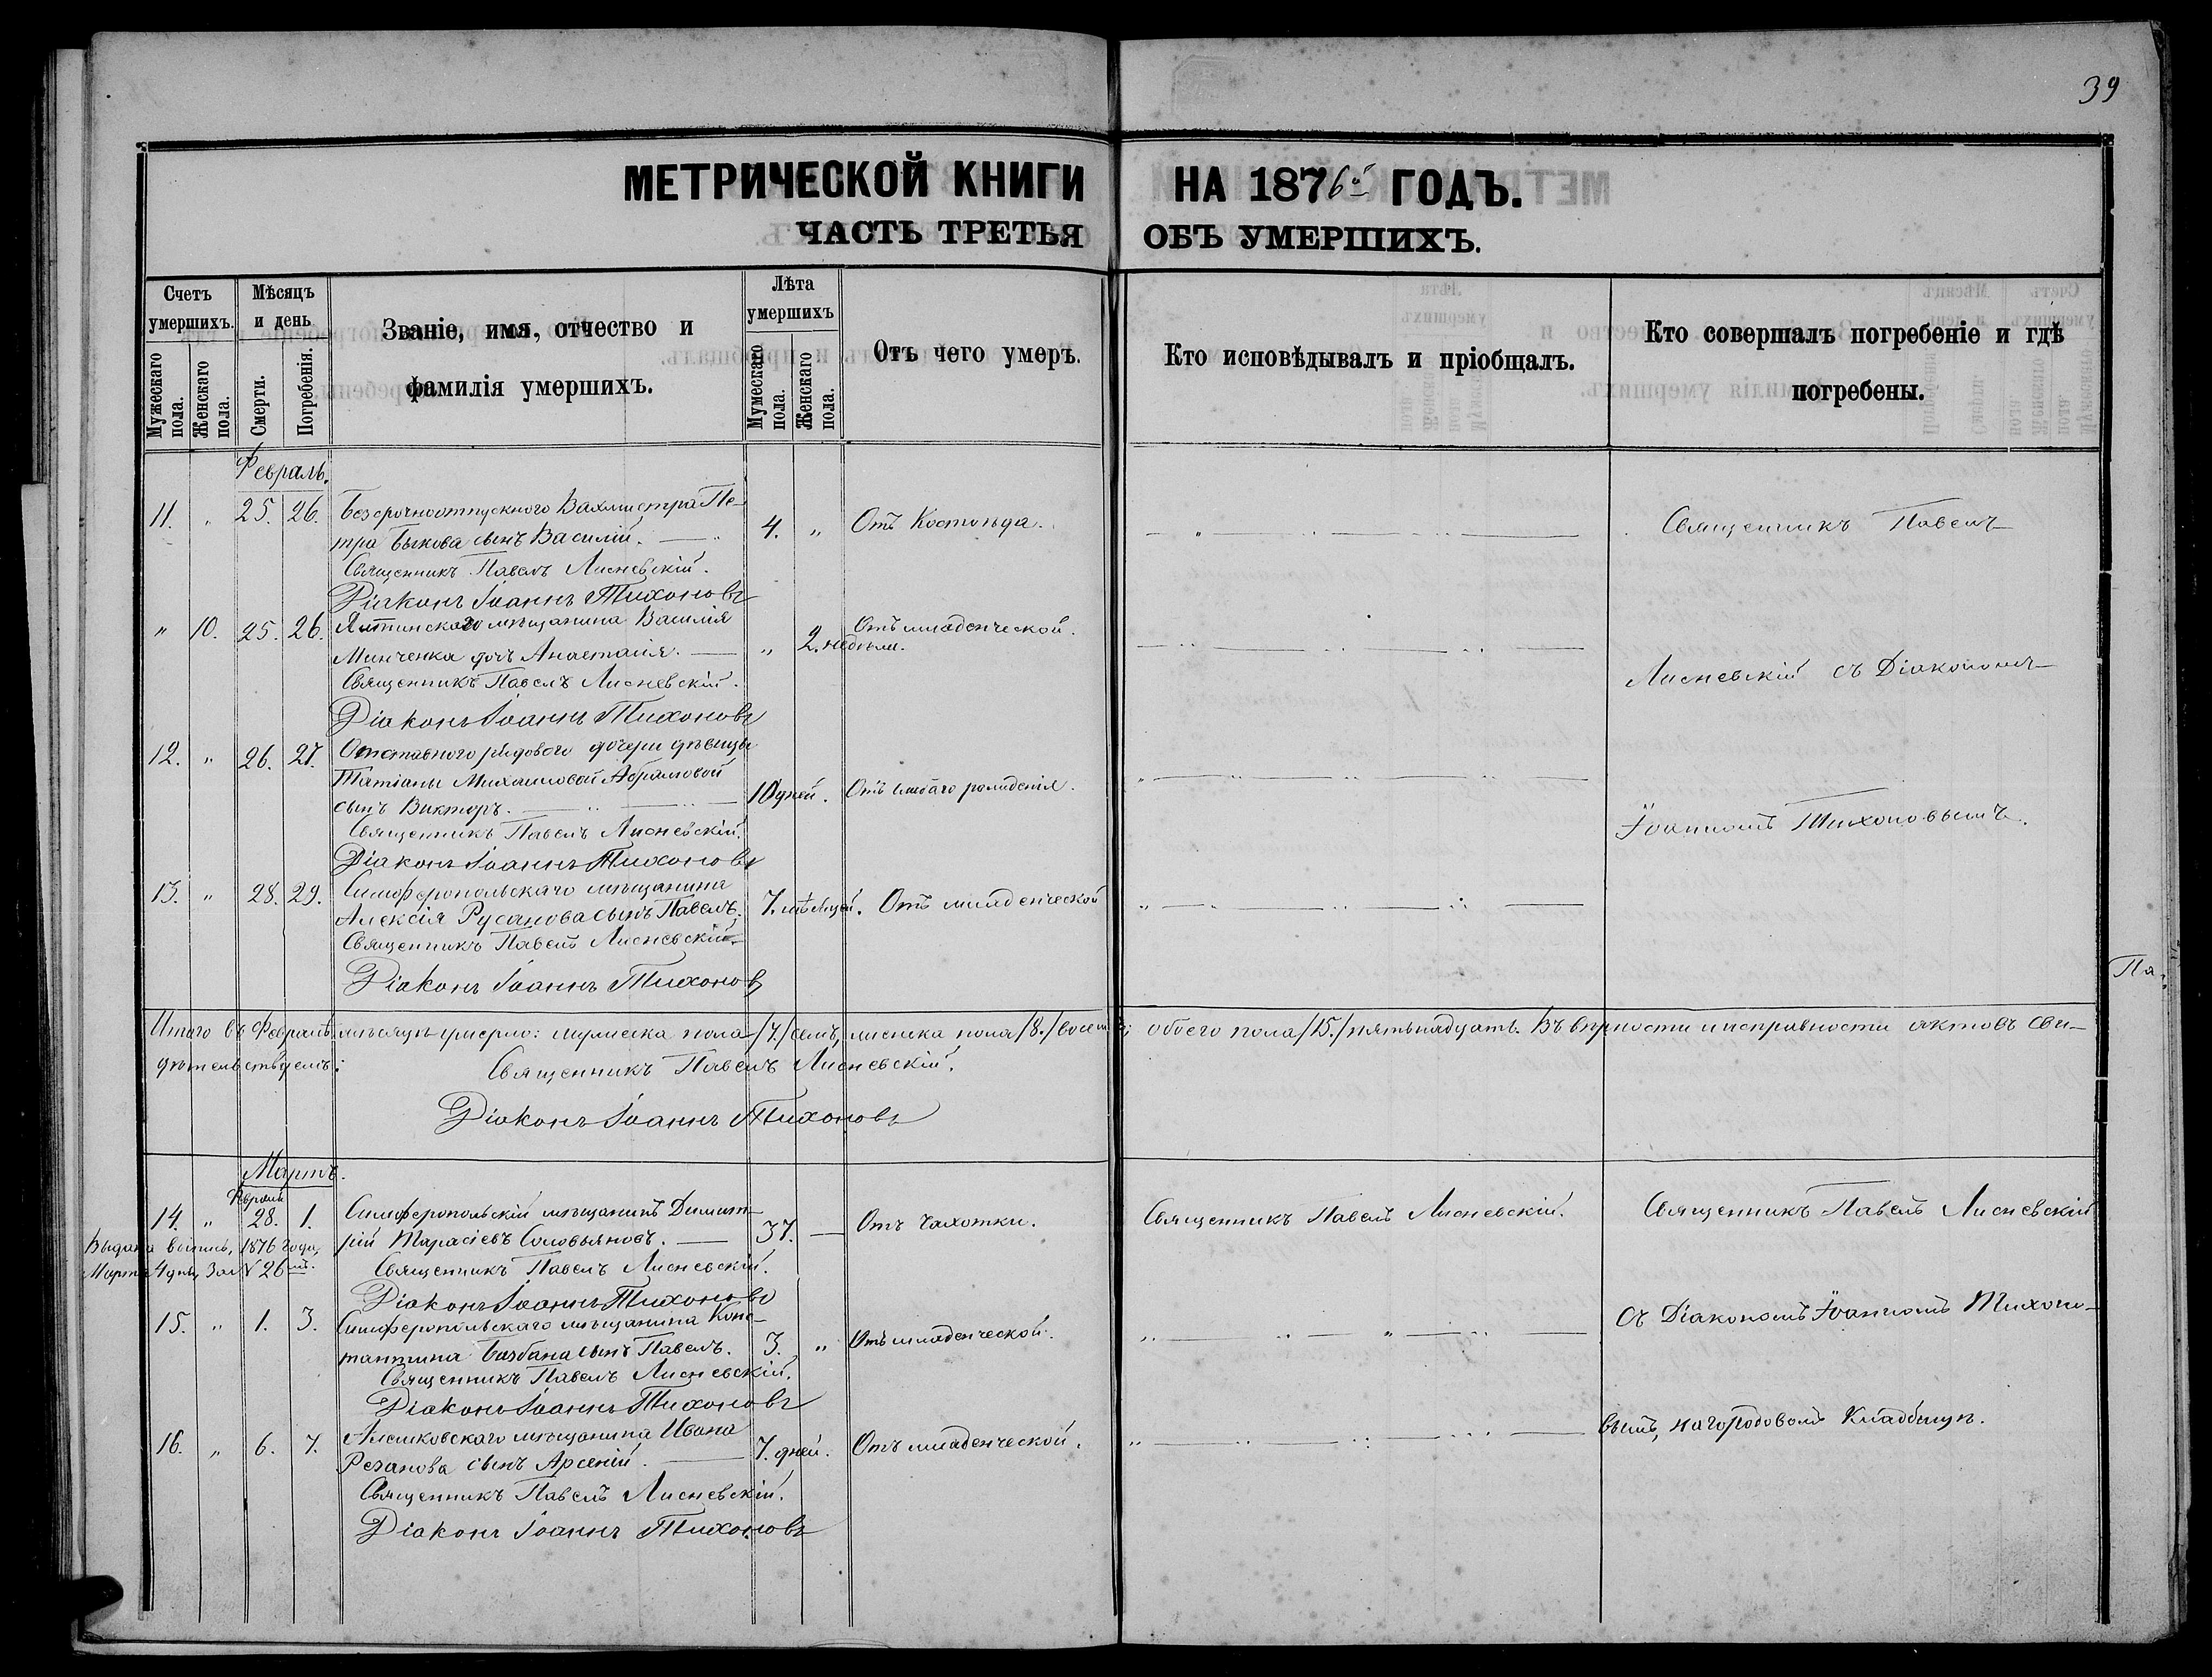 39
МЕТРИЧЕСКОЙ КНИГИ НА 1876й ГОДЪ.
ЧАСТЬ ТРЕТЬЯ ОБЪ УМЕРШИХЪ.
Счетъ умершихъ.
Мужескаго пола.
Женскаго пола.
Мѣсяцъ и день
Смерти.
Погребенія.
Званіе, имя, отчество и
фамилія умершихъ.
Лѣта умершихъ
Мужескаго пола.
Женскаго пола.
Отъ чего умеръ.
Кто исповѣдывалъ и пріобщалъ.
Кто совершалъ погребеніе и гдѣ
погребены.
Февраль.
11. „ 25. 26. Безсрочноотпускного Вахмистра Пе-
тра Быкова сынъ Василій. 4. „ Отъ
Священникъ Павелъ
Священникъ Павелъ Лисневскій.
Діаконъ Іоаннъ Тихоновъ
„ 10. 25. 26. Ялтинскаго мѣщанина Василія
Минченка дочь Анастасія. „ 2. недѣли. Отъ младенческой.
Лисневскій съ Діакономъ
Священникъ Павелъ Лисневскій.
Діаконъ Іоаннъ Тихоновъ
12. „ 26. 27. Отставного рядового дочери дѣвицы
Татіаны Михаиловой Абрамовой
сынъ Викторъ. 10 дней. Отъ слабаго рожденія.
Іоанномъ Тихоновымъ.
Священникъ Павелъ Лисневскій.
Діаконъ Іоаннъ Тихоновъ
13. „ 28. 29. Симферопольскаго мѣщанина
Алексія Русанова сынъ Павелъ. 7. мѣсяцей. Отъ младенческой
Священникъ Павелъ Лисневскій.
Діаконъ Іоаннъ Тихоновъ
Па-
Итого въ Февралѣ мѣсяцѣ умерло: мужеска пола /7./ семь, женска пола /8./ восемь; обоего пола /15./ пятьнадцать. Въ вѣрности и исправности актовъ сви-
дѣтельствуемъ:
Священникъ Павелъ Лисневскій.
Діаконъ Іоаннъ Тихоновъ
Мартъ.
Февраля
14. „ 28. 1. Симферопольскій мѣщанинъ Димит-
рій Тарасіевъ Соловьяновъ. 37. — Отъ Чахотки. Священникъ Павелъ Лисневскій. Священникъ Павелъ Лисневскій
Выдана выпись, 1876 года,
Марта 4 дня, За № 26мъ.
Священникъ Павелъ Лисневскій.
Діаконъ Іоаннъ Тихоновъ
15. „ 1. 3. Симферопольскаго мѣщанина Конс-
тантина Базбана сынъ Павелъ. 3. „ Отъ младенческой.
съ Діакономъ Іоанномъ Тихоно-
Священникъ Павелъ Лисневскій.
Діаконъ Іоаннъ Тихоновъ
16. „ 6. 7. Алешковскаго мѣщанина Ивана
Резанова сынъ Арсеній. 7. дней. Отъ младенческой.
вымъ, на городовомъ Кладбищѣ.
Священникъ Павелъ Лисневскій.
Діаконъ Іоаннъ Тихоновъ